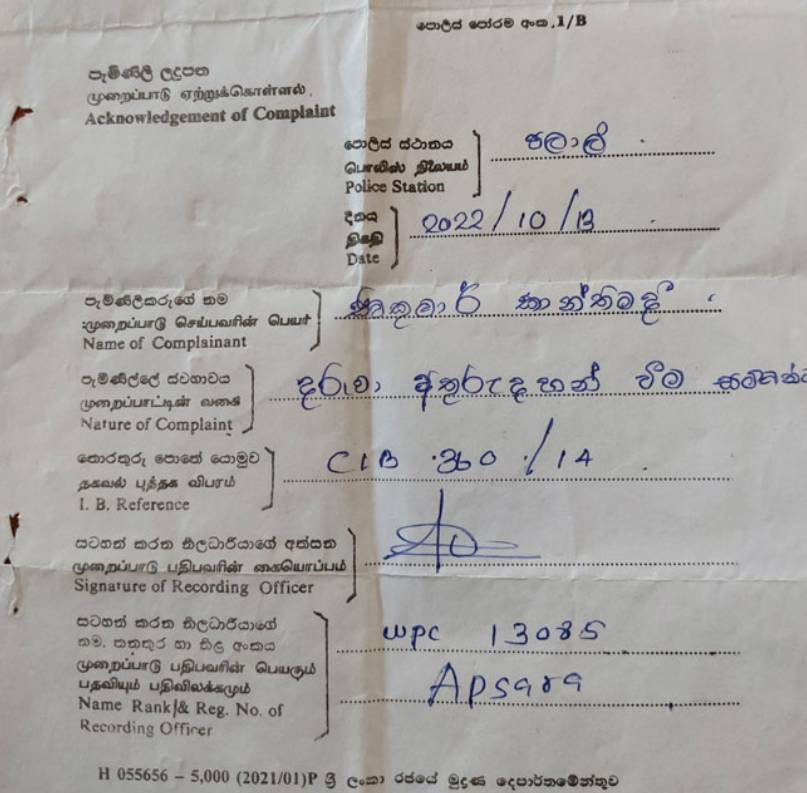 පොලිස් පෝරම අංක.1/B
පැමිණිලි ලදුපත
முறைப்பாடு ஏற்றுக்கொள்ளல்.
Acknowledgement of Complaint
පොලිස් ස්ථානය
பொலிஸ் நிலையம்
Police Station
පලාලි
දිනය
திகதி
Date
2022/10/13
පැමිණිලිකරුගේ නම
முறைப்பாடு செய்பவரின் பெயர்
Name of Complainant
සිවකුමාර් කාන්තිමදී
පැමිණිල්ලේ ස්වභාවය
முறைப்பாட்டின் வகை
Nature of Complaint
දරුවා අතුරුදහන් වීම සම්බන්ධ
තොරතුරු පොතේ යොමුව
தகவல் புத்தக விபரம்
I. B. Reference
CIB 360/14
සටහන් කරන නිලධාරියාගේ අත්සන
முறைப்பாடு பதிபவரின் கையொப்பம்
Signature of Recording Officer
සටහන් කරන නිලධාරියාගේ
නම, තනතුර හා නිල අංකය
முறைப்பாடு பதிபவரின் பெயரும்
பதவியும் பதிவிலக்கமும்
Name Rank & Reg. No. of
Recording Officer
wpc 13085
Apsara
H 055656 – 5,000 (2021/01)P ශ්‍රී ලංකා රජයේ මුද්‍රණ දෙපාර්තමේන්තුව